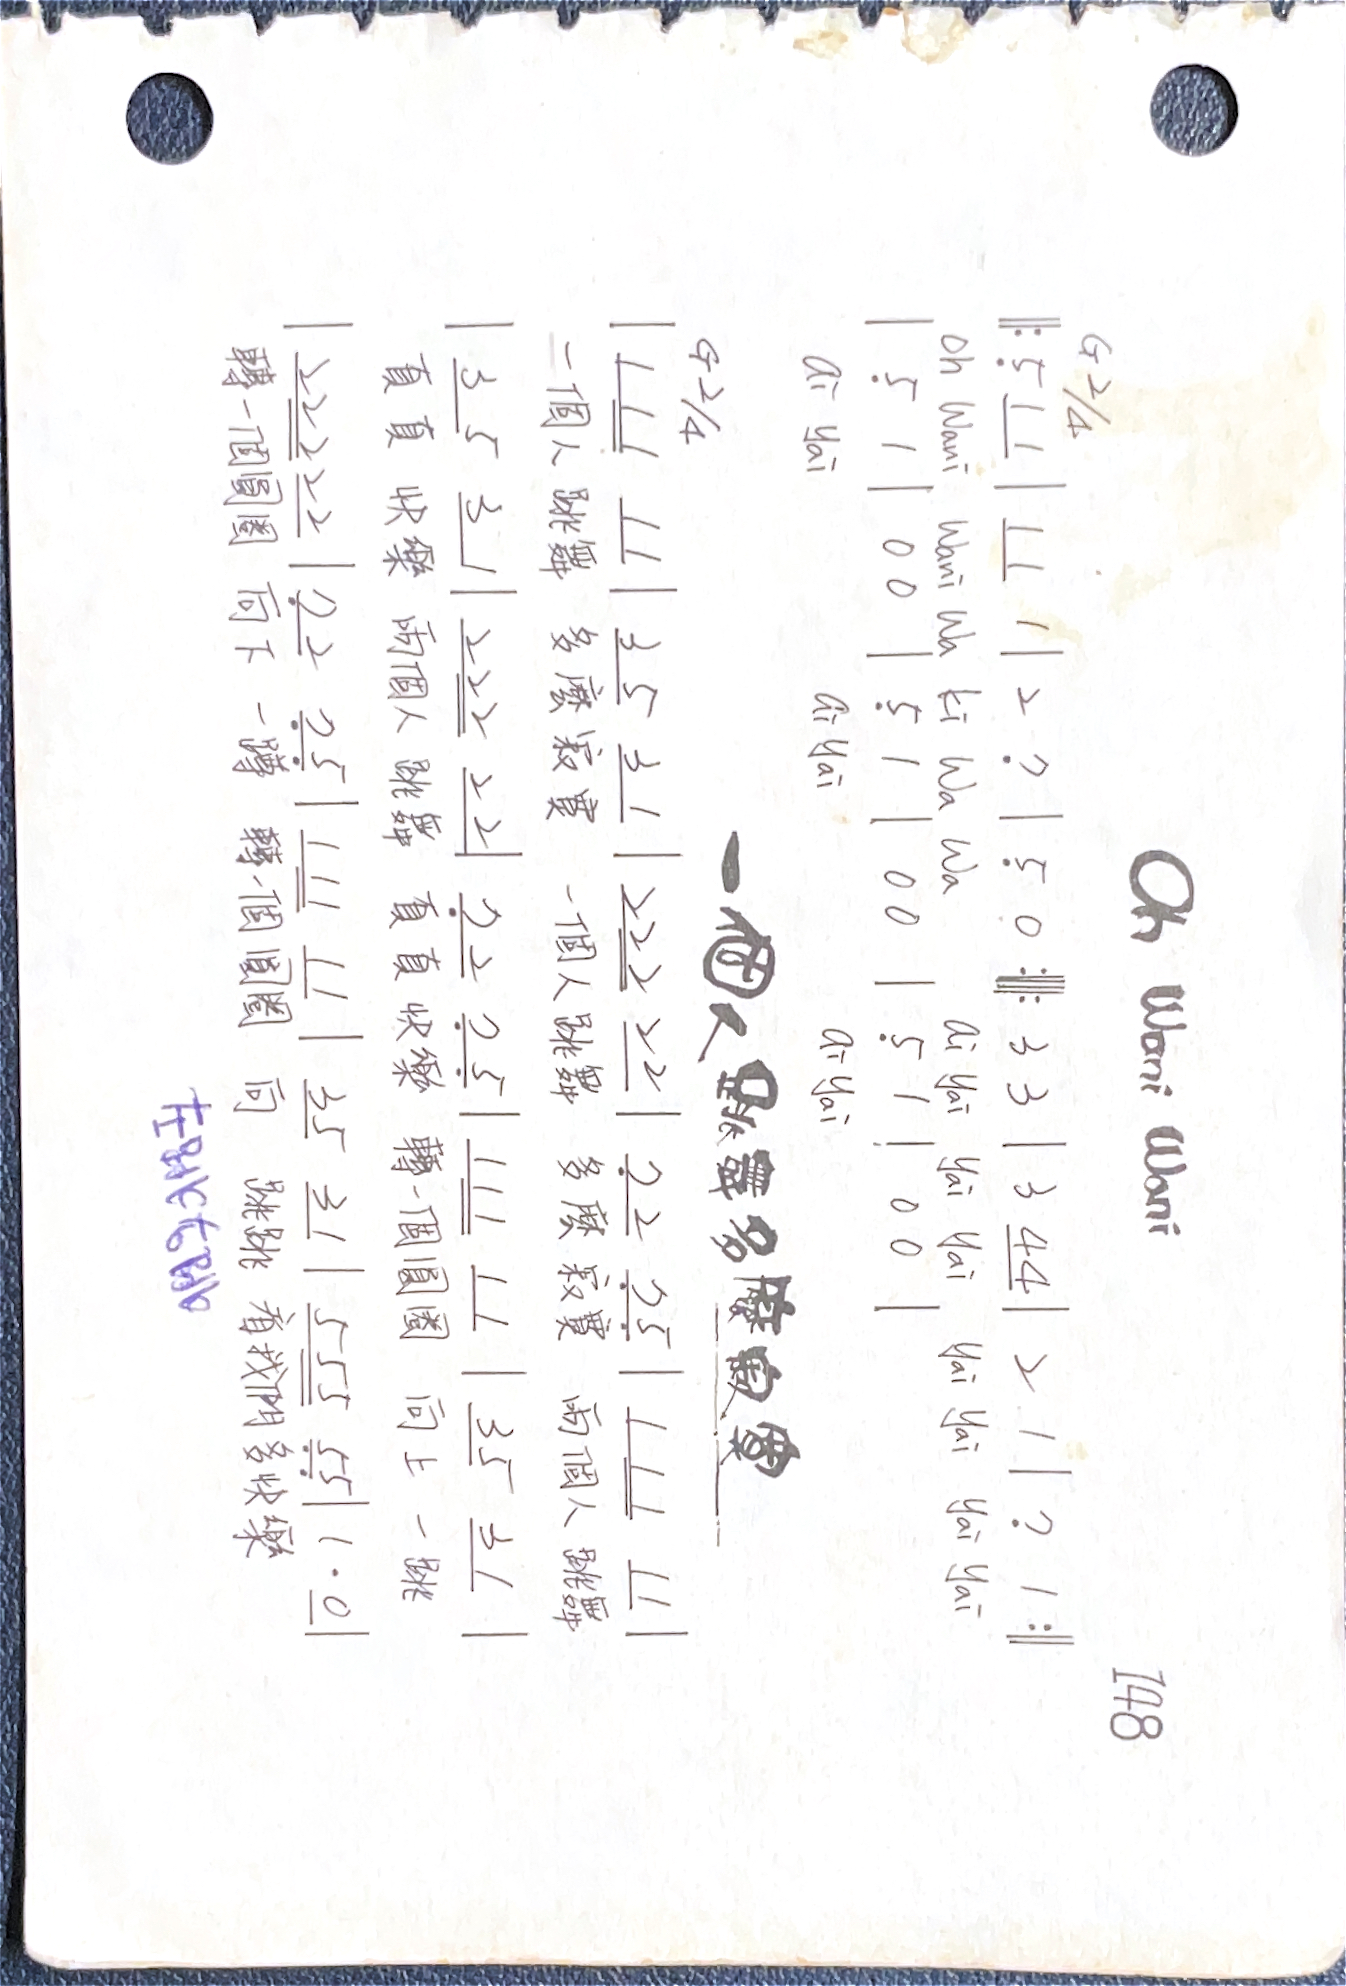 Oh Wani Wani
148
G 2/4
‖: 5̣ 1 1 | 1 1 1 | 2 7̣ | 5̣ 0 :‖: 3 3 | 3 4 4 | 2 1 | 7̣ 1 :‖
Oh Wani Wani Wa Ki Wa Wa Ai Yai Yai Yai Yai Yai Yai Yai
| 5̣ 1 | 0 0 | 5̣ 1 | 0 0 | 5̣ 1 | 0 0 |
Ai Yai Ai Yai Ai Yai
一個人跳舞多麼寂寞
G 2/4
| 1 1 1 1 1 | 3 5 3 1 | 2 2 2 2 2 | 7̣ 2 7̣ 5̣ | 1 1 1 1 1 |
一個人跳舞 多麼寂寞 一個人跳舞 多麼寂寞 兩個人跳舞
| 3 5 3 1 | 2 2 2 2 2 | 7̣ 2 7̣ 5̣ | 1 1 1 1 1 | 3 5 3 1 |
真真快樂 兩個人跳舞 真真快樂 轉一個圓圈 向上一跳
| 2 2 2 2 2 | 7̣ 2 7̣ 5̣ | 1 1 1 1 1 | 3 5 3 1 | 5 5 5 5̣ 5̣ | 1 · 0 |
轉一個圓圈 向下一蹲 轉一個圓圈 向 跳跳 看我們多快樂